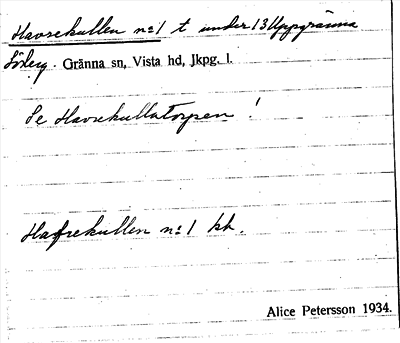 Havrekullen n:o 1 t under 13 Uppgränna
Sörby. Gränna sn, Vista hd, Jkpg. l.
Se Havrekullatorpen!
Hafrekullen n:o 1 kk.
Alice Petersson 1934.